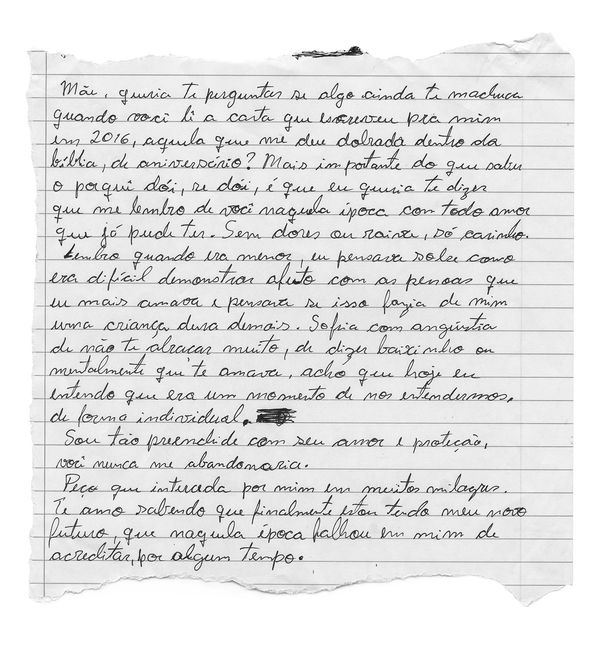 Mãe, queria te perguntar se algo ainda te machuca
quando você lê a carta que escreveu pra mim
em 2016, aquela que me deu dobrada dentro da
bíblia, de aniversário? Mais importante do que saber
o porquê dói, se dói, é que eu queria te dizer
que me lembro de você naquela época com todo amor
que já pude ter. Sem dores ou raiva, só carinho.
Lembro quando era menor, eu pensava sobre como
era difícil demonstrar afeto com as pessoas que
eu mais amava e pensava se isso fazia de mim
uma criança dura demais. Sofria com angústia
de não te abraçar muito, de dizer baixinho ou
mentalmente que te amava, acho que hoje eu
entendo que era um momento de nos entendermos,
de forma individual.
Sou tão preenchide com seu amor e proteção,
você nunca me abandonaria.
Peço que interceda por mim em muitos milagres.
Te amo sabendo que finalmente estou tendo meu novo
futuro, que naquela época falhou em mim de
acreditar, por algum tempo.